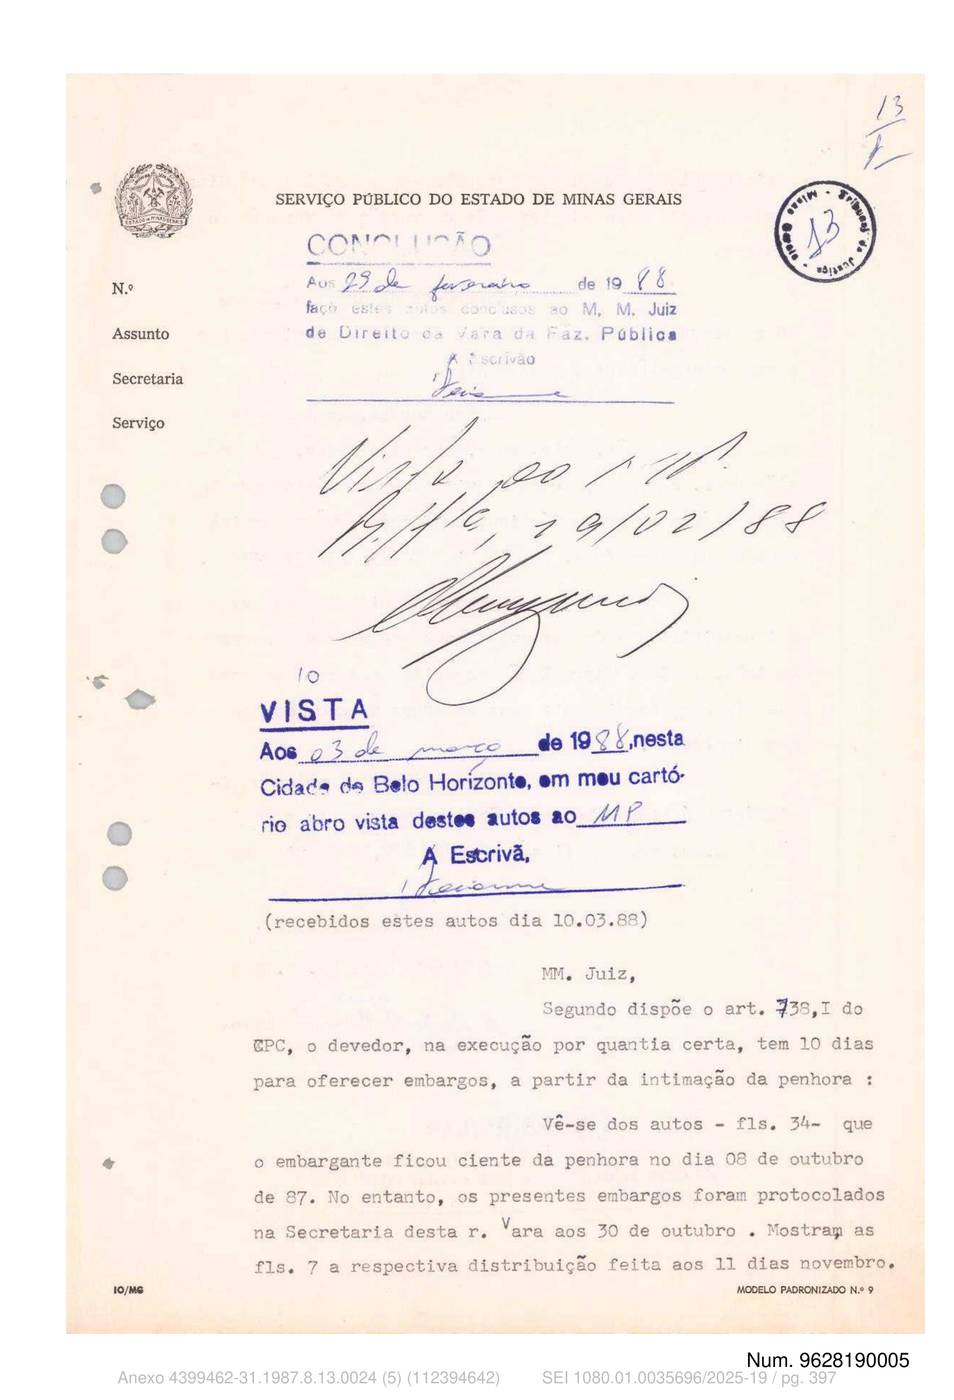 13
SERVIÇO PÚBLICO DO ESTADO DE MINAS GERAIS
Tribunal de Justiça - Minas Gerais -
13
CONCLUSÃO
Aos 29 de fevereiro de 1988
faço estes autos conclusos ao M. M. Juiz
de Direito da Vara da Faz. Pública
A Escrivão
N.º
Assunto
Secretaria
Serviço
Vista ao MP.
29/02/88
10
VISTA
Aos 03 de março de 1988, nesta
Cidade de Belo Horizonte, em meu cartó-
rio abro vista destes autos ao MP
A Escrivã,
(recebidos estes autos dia 10.03.88)
MM. Juiz,
Segundo dispõe o art. 738,I do
CPC, o devedor, na execução por quantia certa, tem 10 dias
para oferecer embargos, a partir da intimação da penhora :
Vê-se dos autos - fls. 34- que
o embargante ficou ciente da penhora no dia 08 de outubro
de 87. No entanto, os presentes embargos foram protocolados
na Secretaria desta r. Vara aos 30 de outubro . Mostram as
fls. 7 a respectiva distribuição feita aos 11 dias novembro.
IO/MG
MODELO PADRONIZADO N.º 9
Num. 9628190005
Anexo 4399462-31.1987.8.13.0024 (5) (112394642) SEI 1080.01.0035696/2025-19 / pg. 397